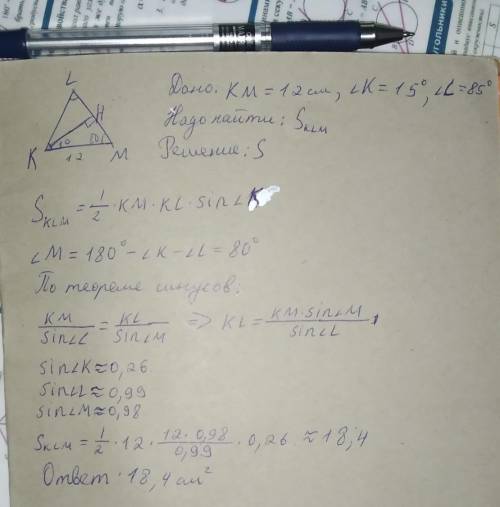 L
H
K
M
12
80
Дано: KM = 12 см, ∠K = 15°, ∠L = 85°
Надо найти: S_KLM
Решение: S
S_KLM = 1/2 · KM · KL · sin∠K
∠M = 180° - ∠K - ∠L = 80°
По теореме синусов:
KM/sin∠L = KL/sin∠M => KL = KM·sin∠M/sin∠L
sin∠K ≈ 0,26
sin∠L ≈ 0,99
sin∠M ≈ 0,98
S_KLM = 1/2 · 12 · 12·0,98/0,99 · 0,26 ≈ 18,4
Ответ: 18,4 см²